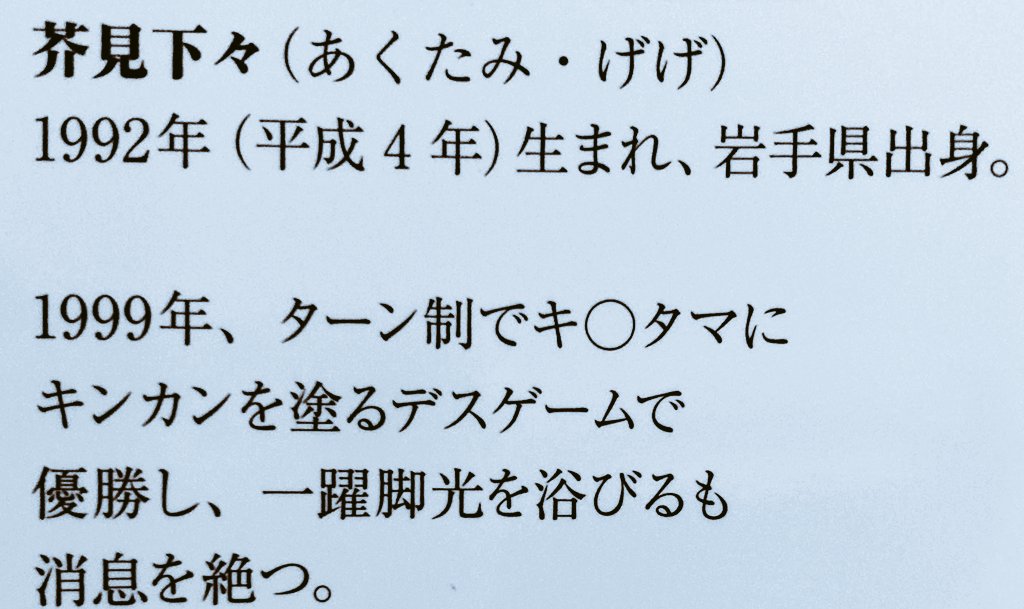 芥見下々（あくたみ・げげ）
1992年（平成４年）生まれ、岩手県出身。
1999年、ターン制でキ〇タマに
キンカンを塗るデスゲームで
優勝し、一躍脚光を浴びるも
消息を絶つ。